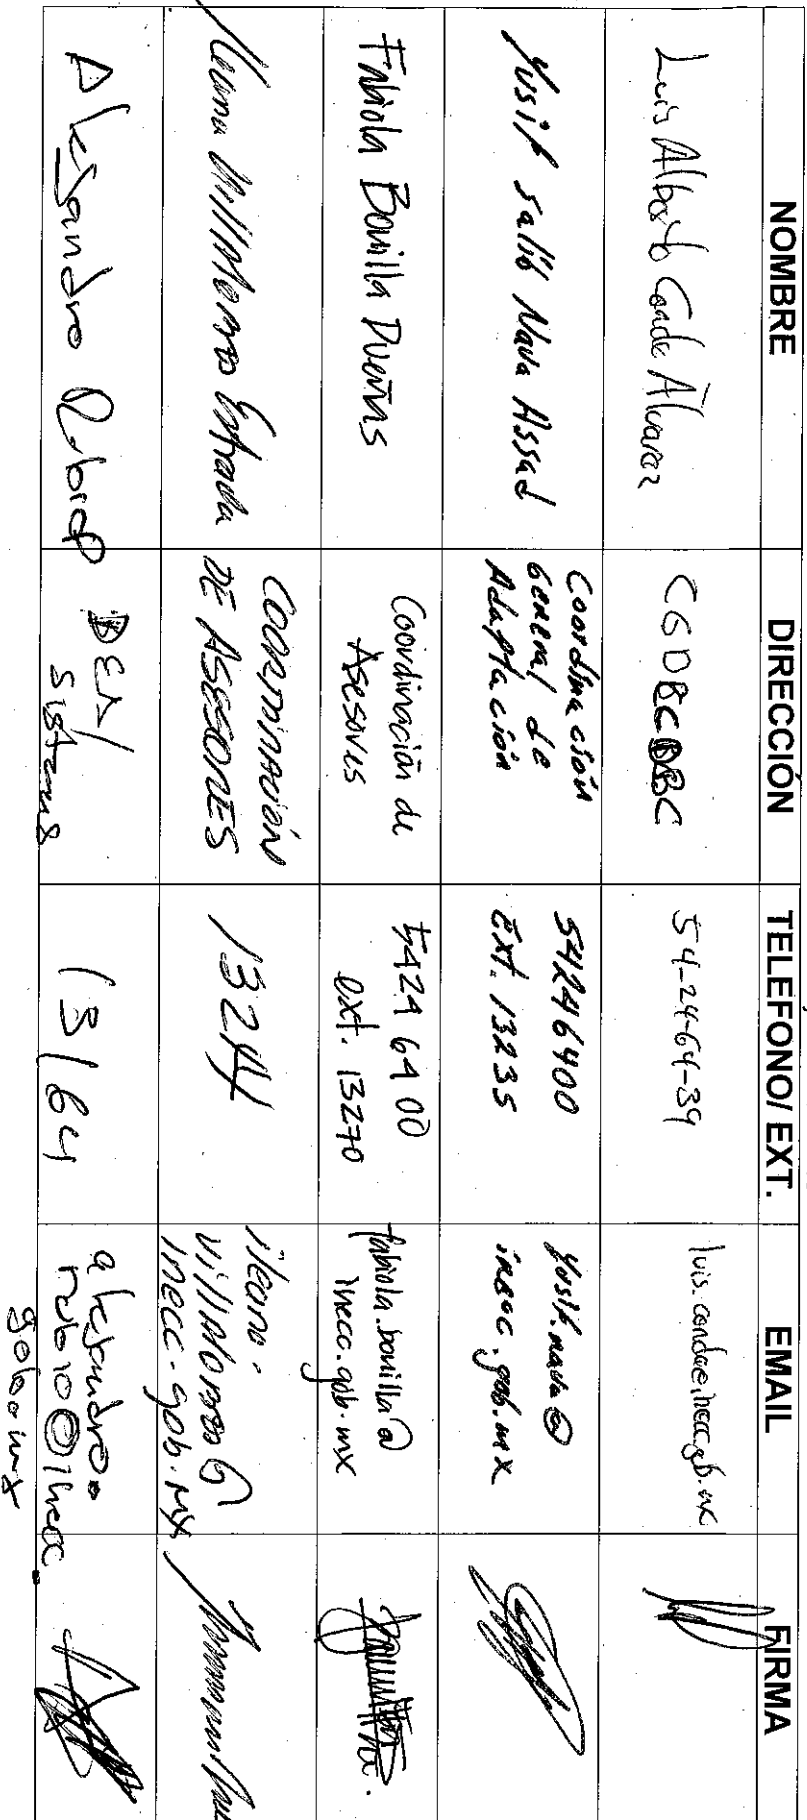 NOMBRE DIRECCIÓN TELÉFONO/ EXT. EMAIL FIRMA
Luis Alberto Conde Álvarez CGD 54-24-64-39 luis.conde@inecc.gob.mx
Yusif Salib Nava Assad
Coordinación
General de
Adaptación
54246400
Ext. 13235
yusif.nava@
inecc.gob.mx
Fabiola Bonilla Dueñas
Coordinación de
Asesores
5424 64 00
ext. 13270
fabiola.bonilla@
inecc.gob.mx
Ileana Villalobos Estrada
COORDINACIÓN
DE ASESORES
13244
ileana.
villalobos@
inecc.gob.mx
Alejandro Rubio
Sistemas
13164
alejandro.
rubio@inecc.
gob.mx